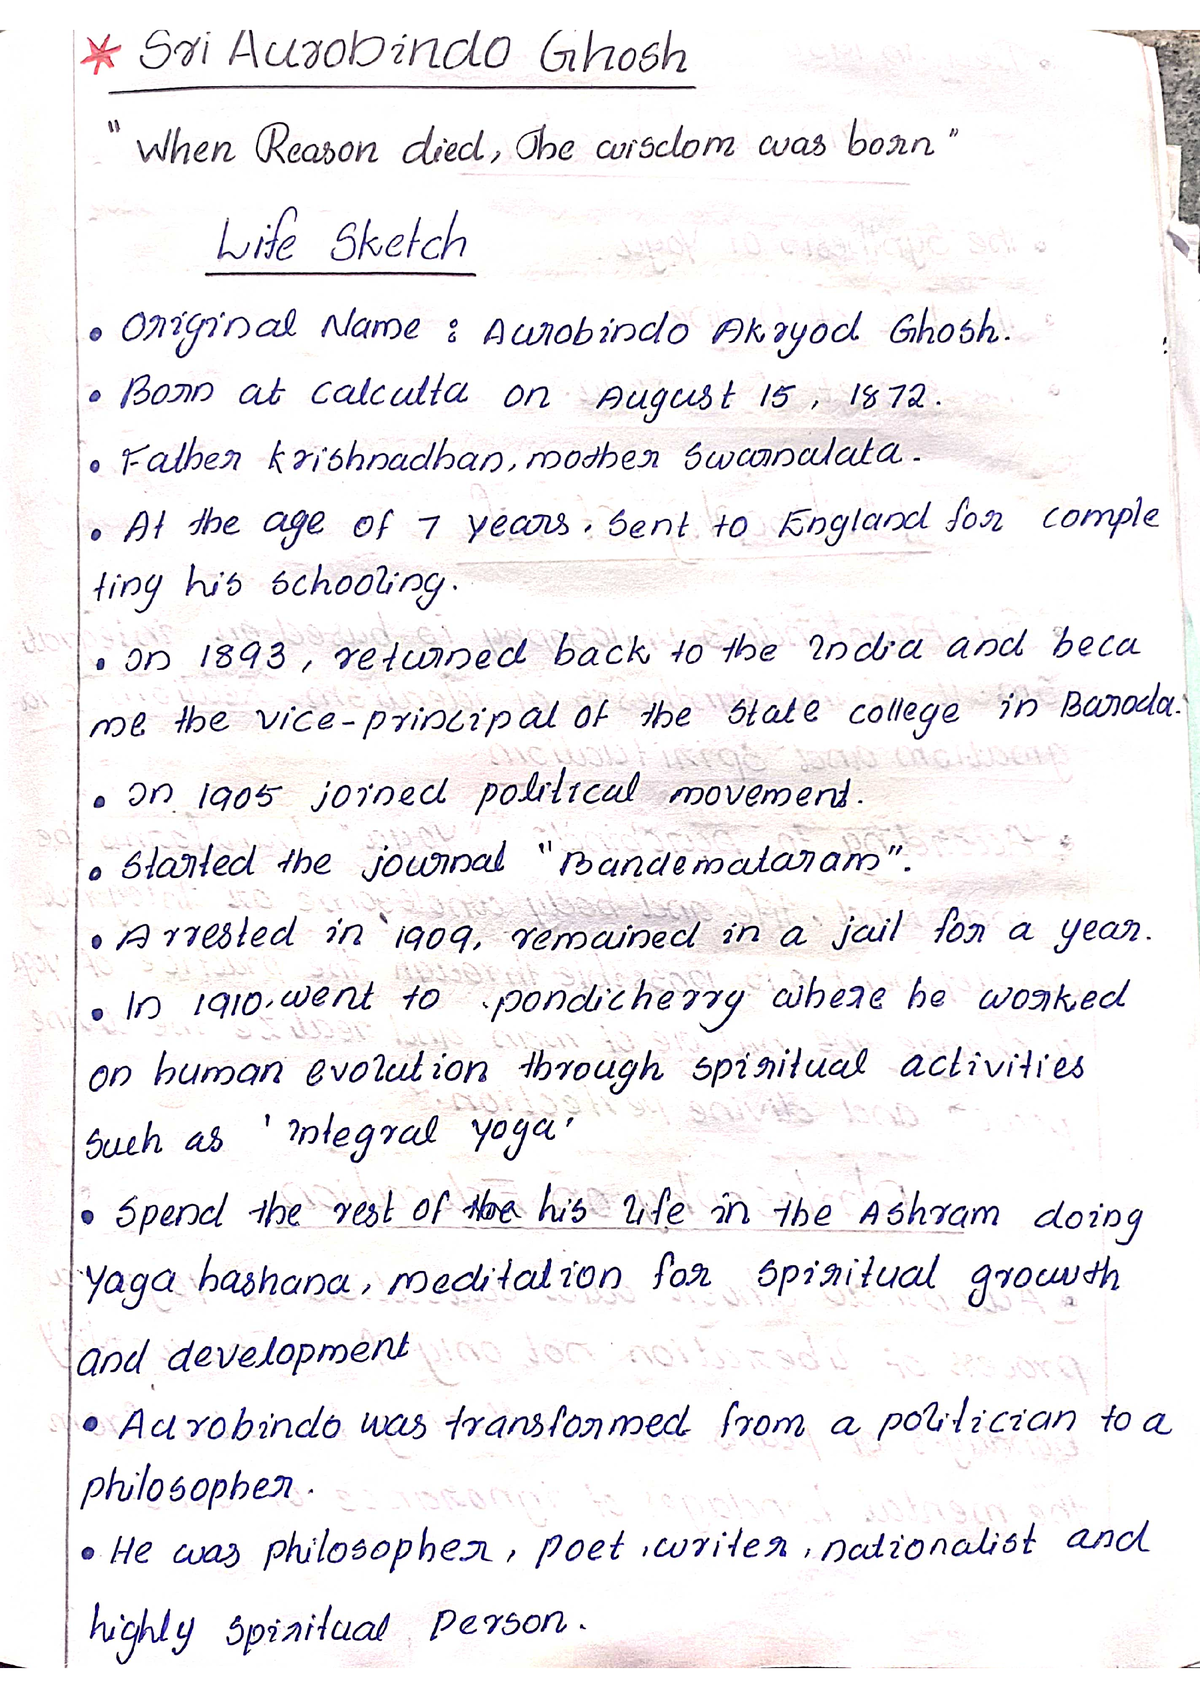 * Sri Aurobindo Ghosh
"When Reason died, The wisdom was born"
Life Sketch
• Original Name : Aurobindo Akryod Ghosh.
• Born at Calcutta on August 15, 1872.
• Father krishnadhan, mother Swarnalata.
• At the age of 7 years. Sent to England for comple
ting his schooling.
• In 1893, returned back to the India and beca
me the vice-principal of the State college in Baroda.
• In 1905 joined political movement.
• Started the journal "Bandemataram".
• Arrested in 1909, remained in a jail for a year.
• In 1910, went to pondicherry where he worked
on human evolution through spiritual activities
such as 'Integral yoga'
• Spend the rest of the his life in the Ashram doing
Yaga hashana, meditation for spiritual growth
and development
• Aurobindo was transformed from a politician to a
philosopher.
• He was philosopher, poet, writer, nationalist and
highly spiritual person.